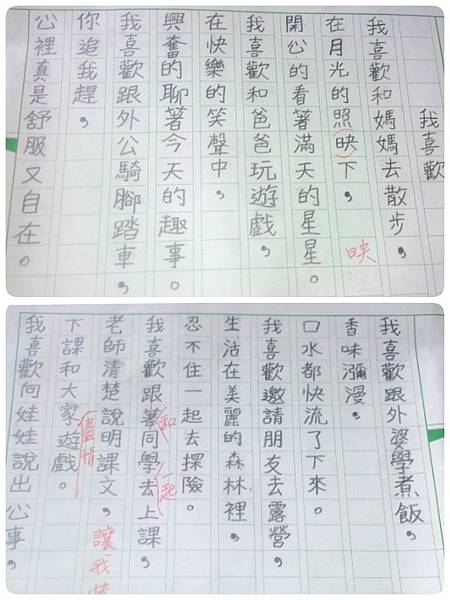 我喜歡
我喜歡和媽媽去散步，
在月光的照映下，
映
開心的看著滿天的星星。
我喜歡和爸爸玩遊戲，
在快樂的笑聲中，
興奮的聊著今天的趣事。
我喜歡跟外公騎腳踏車，
你追我趕，
心裡真是舒服又自在。
我喜歡跟外婆學煮飯，
香味瀰漫，
口水都快流了下來。
我喜歡邀請朋友去露營，
生活在美麗的森林裡，
忍不住一起去探險。
我喜歡跟著同學去上課，
和
一起
老師清楚說明課文，
讓我快
下課和大家遊戲。
盡情
我喜歡向娃娃說出心事，